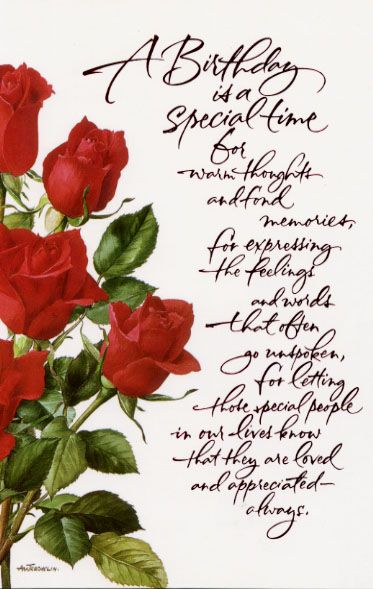 A Birthday
is a
special time
for
warm thoughts
and fond
memories,
for expressing
the feelings
and words
that often
go unspoken,
for letting
those special people
in our lives know
that they are loved
and appreciated—
always.